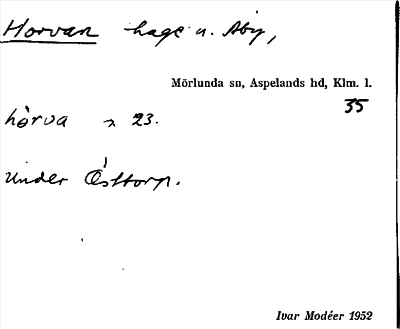 Horvan hage u. Åby,
Mörlunda sn, Aspelands hd, Klm. l.
35
hòrva 23.
under Östtorp.
Ivar Modéer 1952